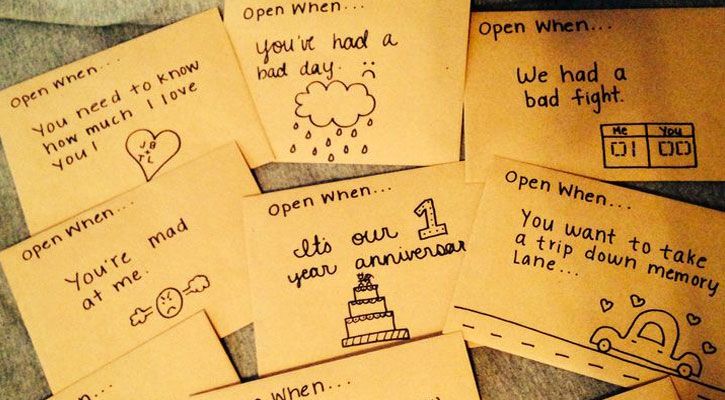 Open When...
You need to know
how much I love
you!
JB
+
TL
Open When...
You've had a
bad day.
Open When...
We had a
bad fight.
Me You
01 00
Open When...
You're mad
at me.
Open When...
It's our 1
year anniversar
Open When...
You want to take
a trip down memory
Lane...
When...